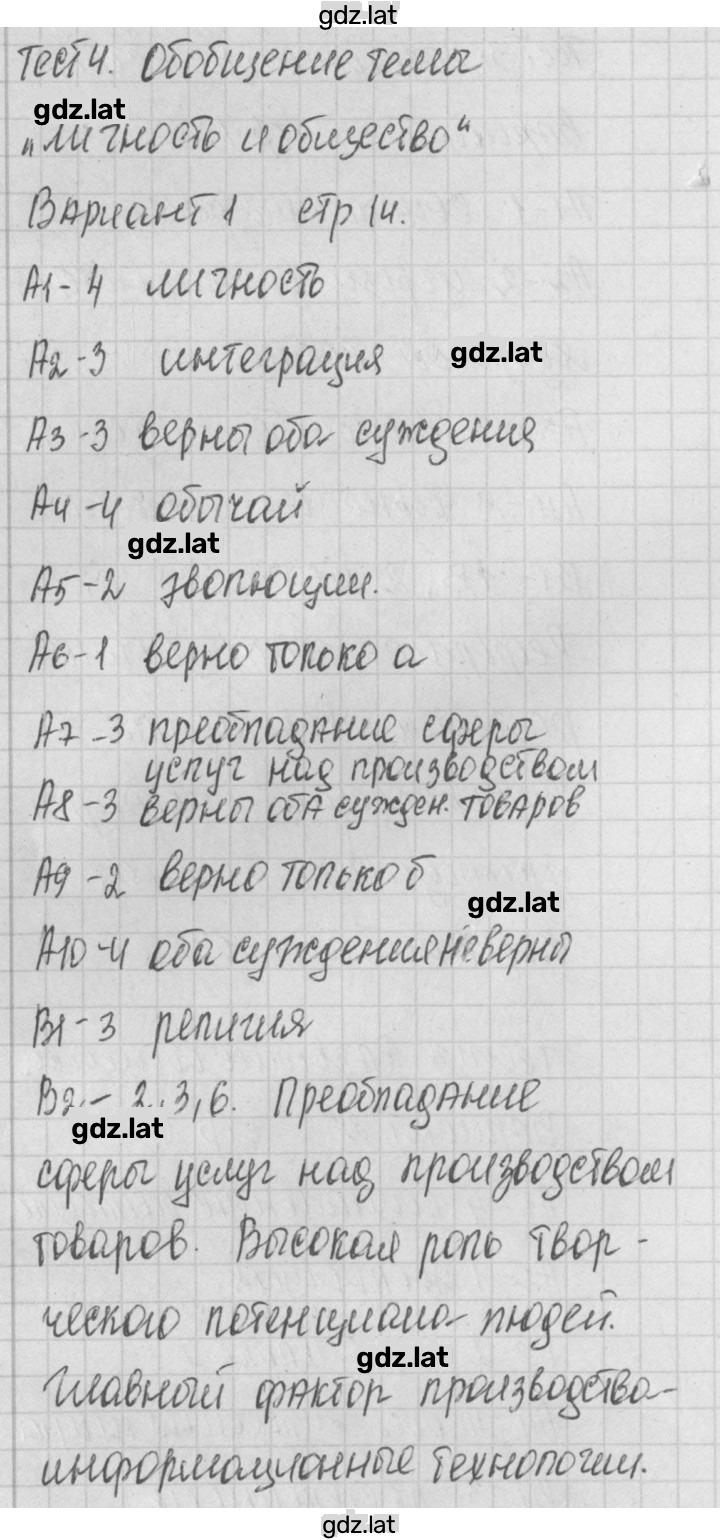 gdz.lat
Тест 4. Обобщение темы
gdz.lat
„личность и общество“
Вариант 1 стр 14.
А1 - 4 личность
А2 - 3 интеграция gdz.lat
А3 - 3 верны оба суждения
А4 - 4 обычай
gdz.lat
А5 - 2 эволюции.
А6 - 1 верно только а
А7 - 3 преобладание сферы
услуг над производством
А8 - 3 верны оба сужден. товаров
А9 - 2 верно только б
gdz.lat
А10 - 4 оба суждения неверны
В1 - 3 религия
В2 - 2, 3, 6. Преобладание
gdz.lat
сферы услуг над производством
товаров. Высокая роль твор-
ческого потенциала людей.
gdz.lat
Главный фактор производства-
информационные технологии.
gdz.lat